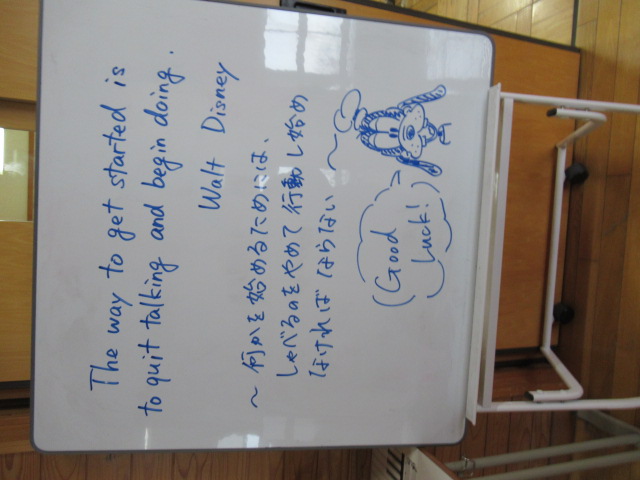 The way to get started is
to quit talking and begin doing.
Walt Disney
～何かを始めるためには、
しゃべるのをやめて行動し始め
なければならない～
Good
Luck!